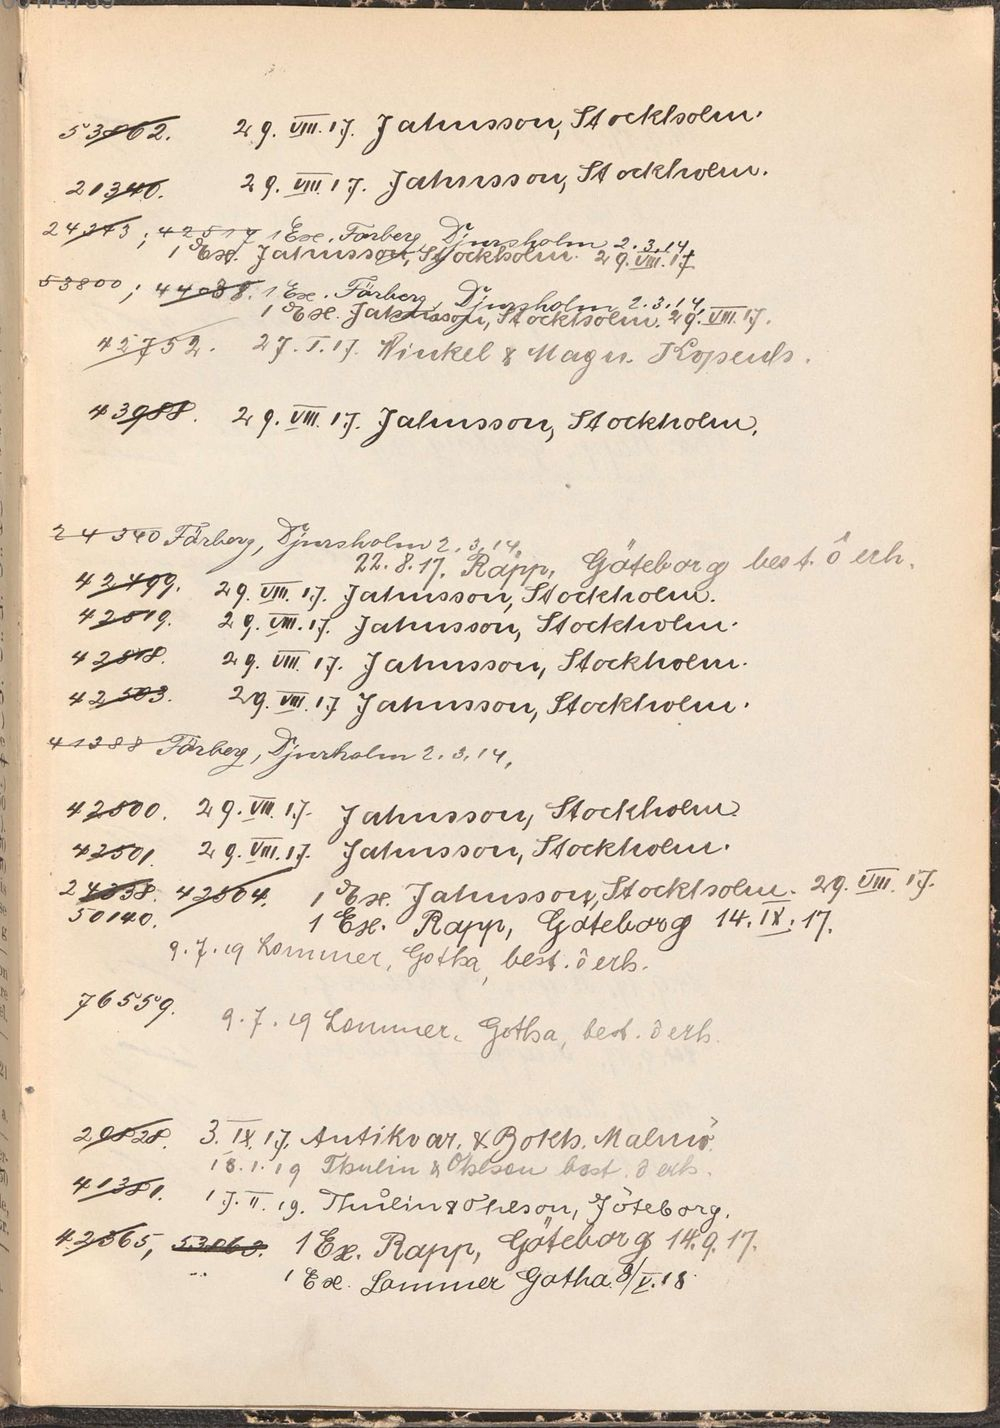 53862. 29. VIII. 17. Jahnsson, Stockholm.
21340. 29. VIII. 17. Jahnsson, Stockholm.
24343; 42517 1 Ex. Färberg Djursholm 2.3.14.
1 Ex. Jahnsson, Stockholm. 29. VIII. 17
53800; 44038. 1 Ex. Färberg, Djursholm 2.3.14.
1 Ex. Jahnsson, Stockholm. 29. VIII. 17.
42752. 27. I. 17. Winkel & Magn. Kopenh.
43988. 29. VIII. 17. Jahnsson, Stockholm.
24340 Färberg, Djursholm 2.3.14.
22.8.17. Rapp, Göteborg best. ô erh.
42499. 29. VIII. 17. Jahnsson, Stockholm.
42519. 29. VIII. 17. Jahnsson, Stockholm.
42518. 29. VIII. 17. Jahnsson, Stockholm.
42503. 29. VIII. 17 Jahnsson, Stockholm.
41388 Färberg, Djurholm 2.3.14.
42500. 29. VIII. 17. Jahnsson, Stockholm
42501. 29. VIII. 17. Jahnsson, Stockholm.
24338. 42504. 1 Ex. Jahnsson, Stockholm. 29. VIII. 17.
50140. 1 Ex. Rapp, Göteborg 14. IX. 17.
9.7.19 Lommer, Gotha, best. ô erh.
76559. 9.7.19 Lommer, Gotha, best. ô erh.
29828. 3. IX. 17. Antikvar. & Bokh. Malmö.
18.1.19 Thulin & Ohlson best. ô erh.
41381. 17. II. 19. Thulin & Ohlson, Göteborg.
42365, 53868. 1 Ex. Rapp, Göteborg 14.9.17.
1 Ex. Lommer Gotha 8/V.18